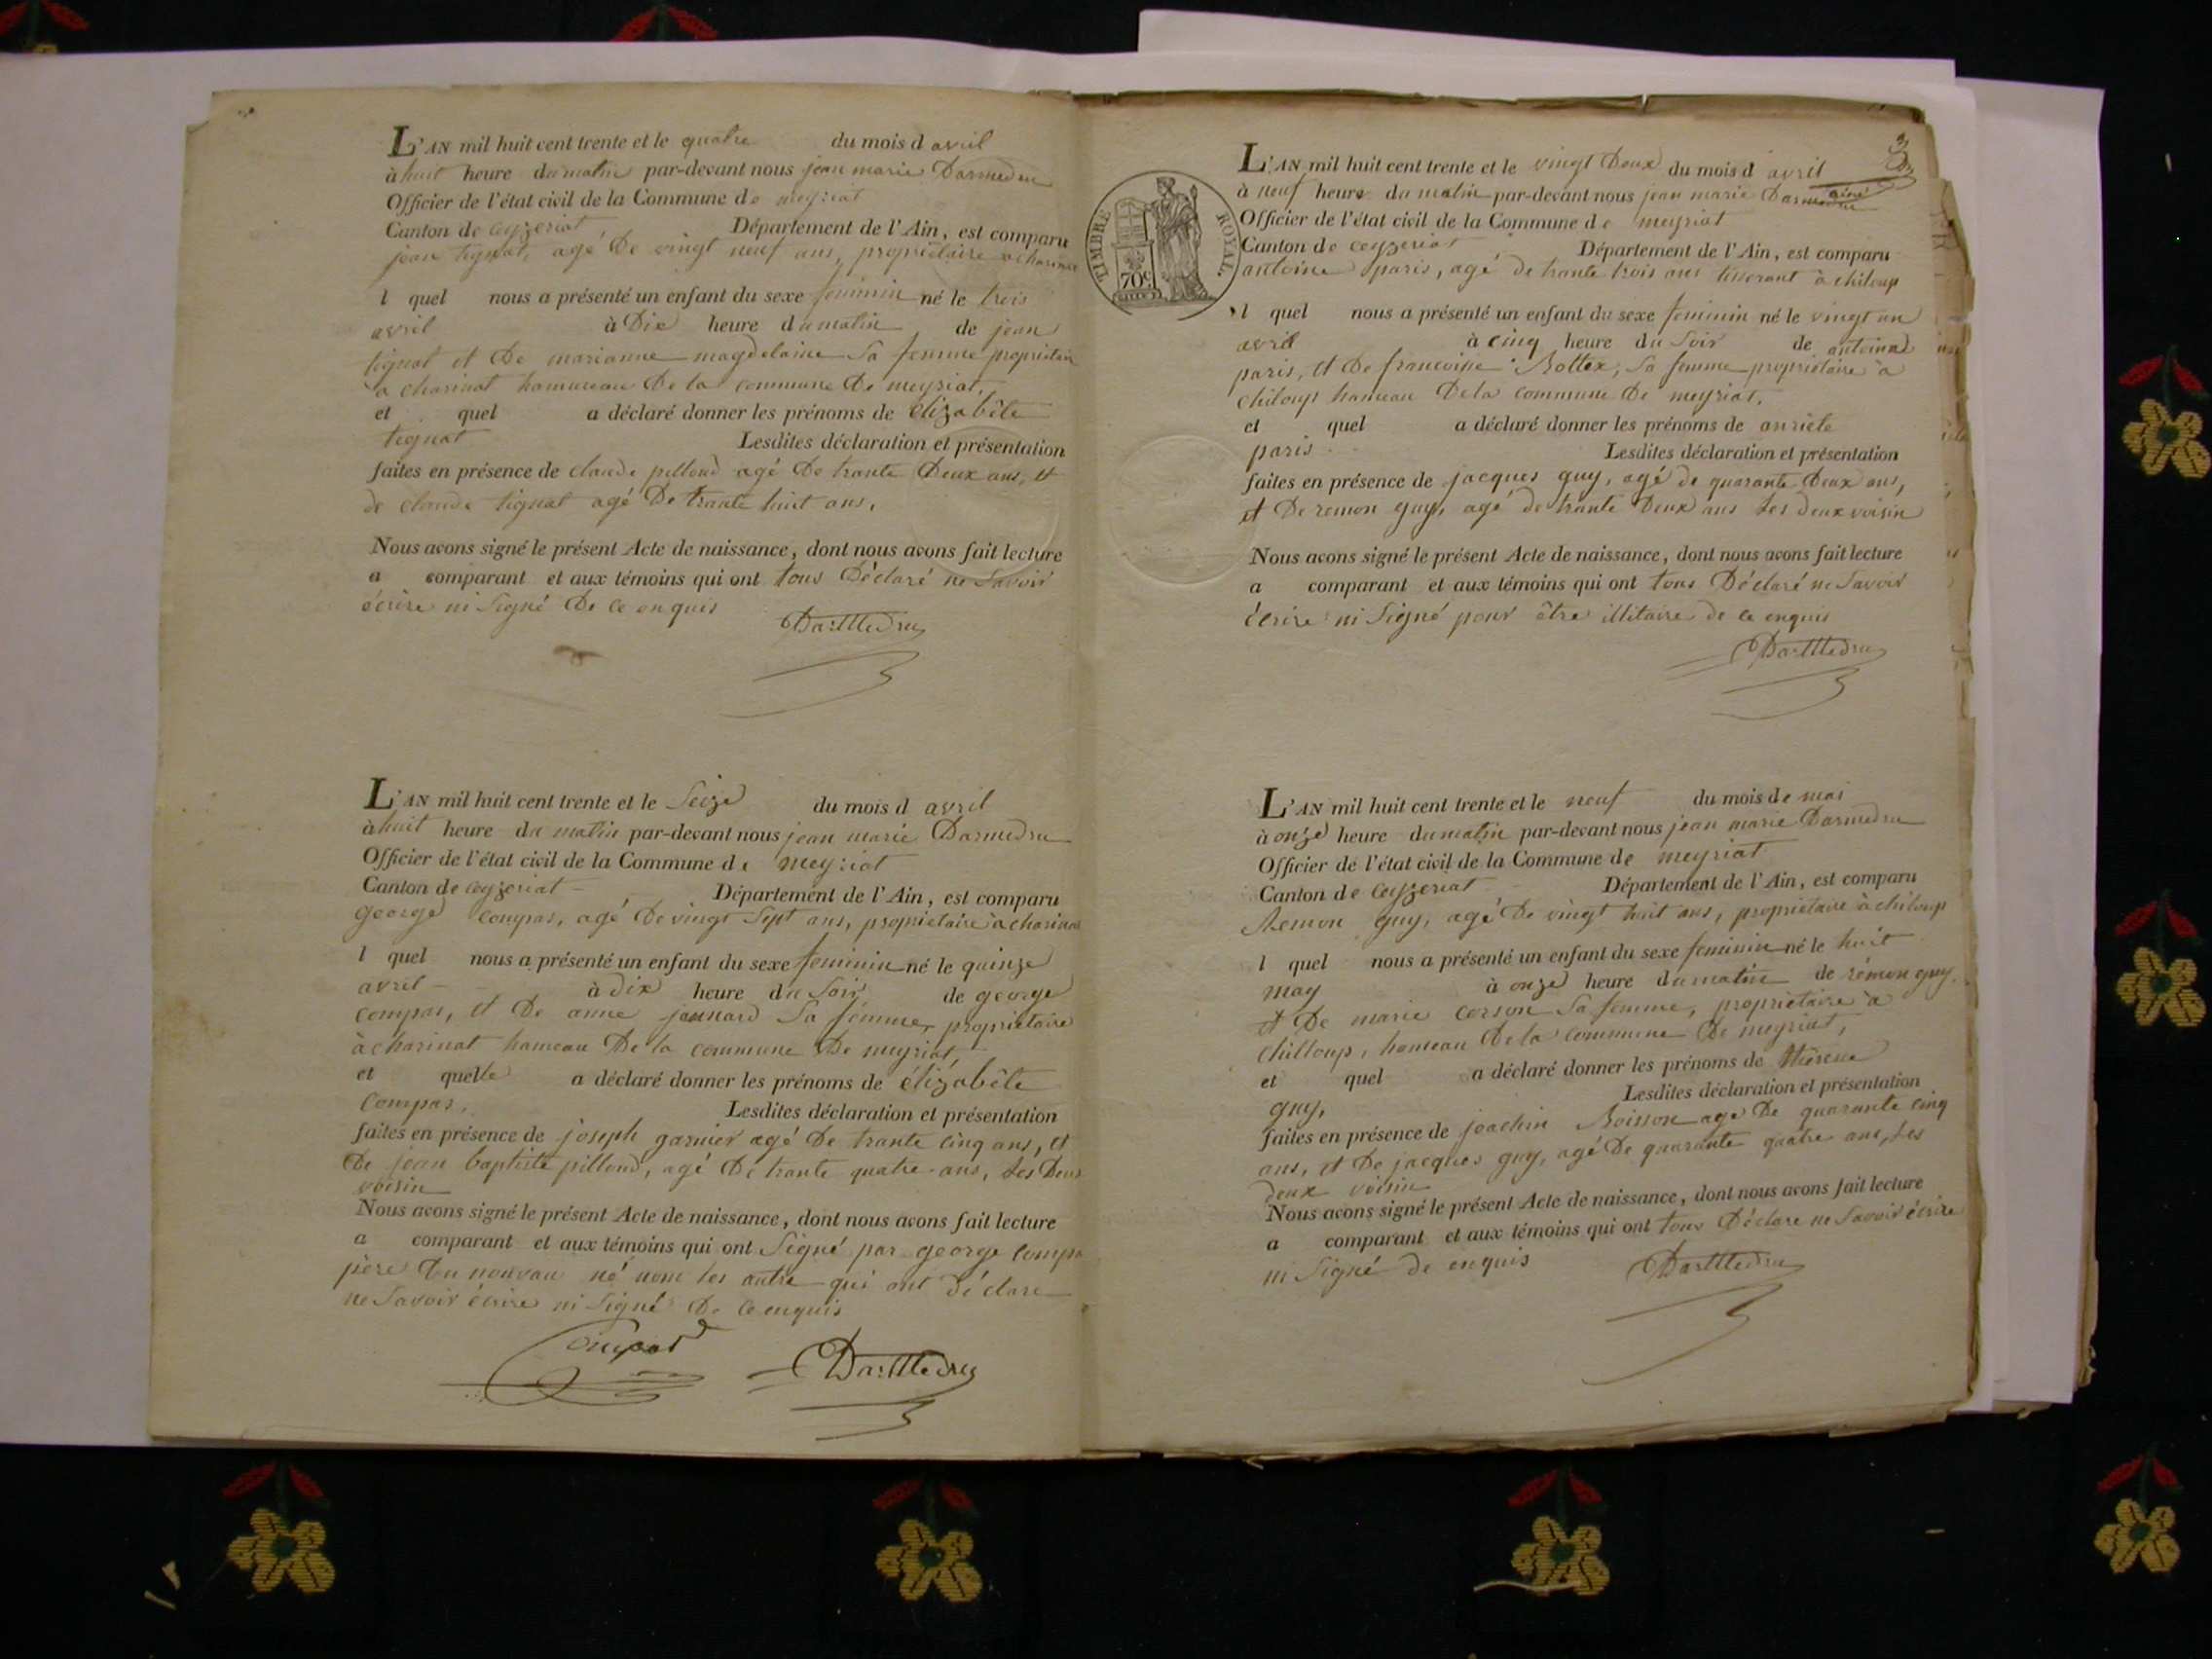 L'AN mil huit cent trente et le quatre du mois d avril
à huit heure du matin par-devant nous jean marie Darmedru
Officier de l'état civil de la Commune de meyriat
Canton de ceyzeriat Département de l'Ain, est comparu
jean tignat, agé De vingt neuf ans, propriétaire a charinat
l quel nous a présenté un enfant du sexe feminin né le trois
avril à Dix heure du matin de jean
tignat et De marianne magdelaine Sa femme propriétaire
a charinat hamureau De la commune De meyriat,
et quel a déclaré donner les prénoms de elizabéte
tignat Lesdites déclaration et présentation
faites en présence de claude pilloud agé De trante Deux ans, et
de claude tignat agé De trante huit ans,
Nous avons signé le présent Acte de naissance, dont nous avons fait lecture
a comparant et aux témoins qui ont tous Déclaré ne Savoir
écrire ni Signé De ce enquis
Darmedru
L'AN mil huit cent trente et le Seize du mois d avril
à huit heure du matin par-devant nous jean marie Darmedru
Officier de l'état civil de la Commune de meyriat
Canton de ceyzeriat Département de l'Ain, est comparu
george compas, agé De vingt Sept ans, propriétaire à charinat
l quel nous a présenté un enfant du sexe feminin né le quinze
avril à dix heure du Soir de george
compas, et De anne jannard Sa femme, propriétaire
à charinat hameau De la commune De meyriat,
et quelle a déclaré donner les prénoms de élizabéte
compas, Lesdites déclaration et présentation
faites en présence de joseph garnier agé De trante cinq ans, et
De jean baptiste pilloud, agé De trante quatre ans, Les Deux
voisin
Nous avons signé le présent Acte de naissance, dont nous avons fait lecture
a comparant et aux témoins qui ont Signé par george compas
père Du nouvau né nom les autre qui ont Déclare
ne Savoir écrire ni Signé De ce enquis
Compas Darmedru
3
TIMBRE ROYAL.
70c
L'AN mil huit cent trente et le vingt Deux du mois d avril
à neuf heure du matin par-devant nous jean marie Darmedru
Officier de l'état civil de la Commune de meyriat
Canton de ceyzeriat Département de l'Ain, est comparu
antoine paris, agé de trante trois ans tisserant à chiloup
l quel nous a présenté un enfant du sexe feminin né le vingt un
avril à cinq heure du Soir de antoine
paris, et De francoise Bottex, Sa femme propriétaire à
chiloup hameau De la commune De meyriat,
et quel a déclaré donner les prénoms de anriete
paris Lesdites déclaration et présentation
faites en présence de jacques guy, agé de quarante Deux ans,
et De remon guy, agé de trante Deux ans Les deux voisin
Nous avons signé le présent Acte de naissance, dont nous avons fait lecture
a comparant et aux témoins qui ont tous Déclaré ne Savoir
écrire ni Signé pour être illitaire de ce enquis
Darmedru
L'AN mil huit cent trente et le neuf du mois de mai
à onze heure du matin par-devant nous jean marie Darmedru
Officier de l'état civil de la Commune de meyriat
Canton de ceyzeriat Département de l'Ain, est comparu
Remon guy, agé De vingt huit ans, propriétaire à chiloup
l quel nous a présenté un enfant du sexe feminin né le huit
may à onze heure du matin de rémon guy
et De marie corson Sa femme, propriétaire à
chilloup, hameau De la commune De meyriat,
et quel a déclaré donner les prénoms de théresse
guy, Lesdites déclaration et présentation
faites en présence de joachin Boisson agé De quarante cinq
ans, et De jacques guy, agé De quarante quatre ans, Les
deux voisin
Nous avons signé le présent Acte de naissance, dont nous avons fait lecture
a comparant et aux témoins qui ont tous Déclare ne Savoir écrire
ni Signé de enquis
Darmedru